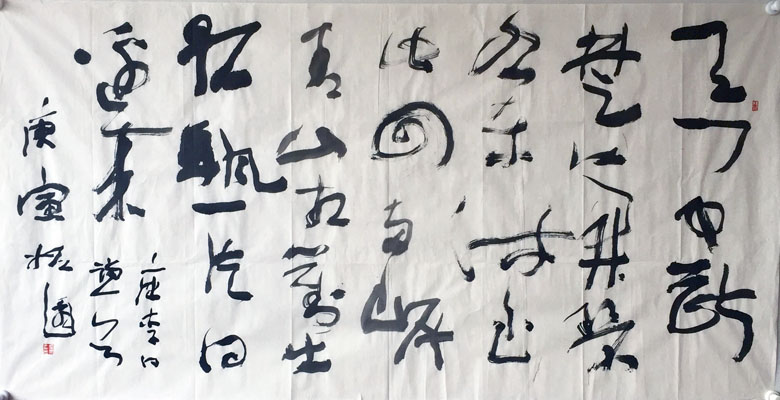 天门中断
楚江开碧
水东流至
此回两岸
青山相對出
孤帆一片日
边来
唐李白
庚寅